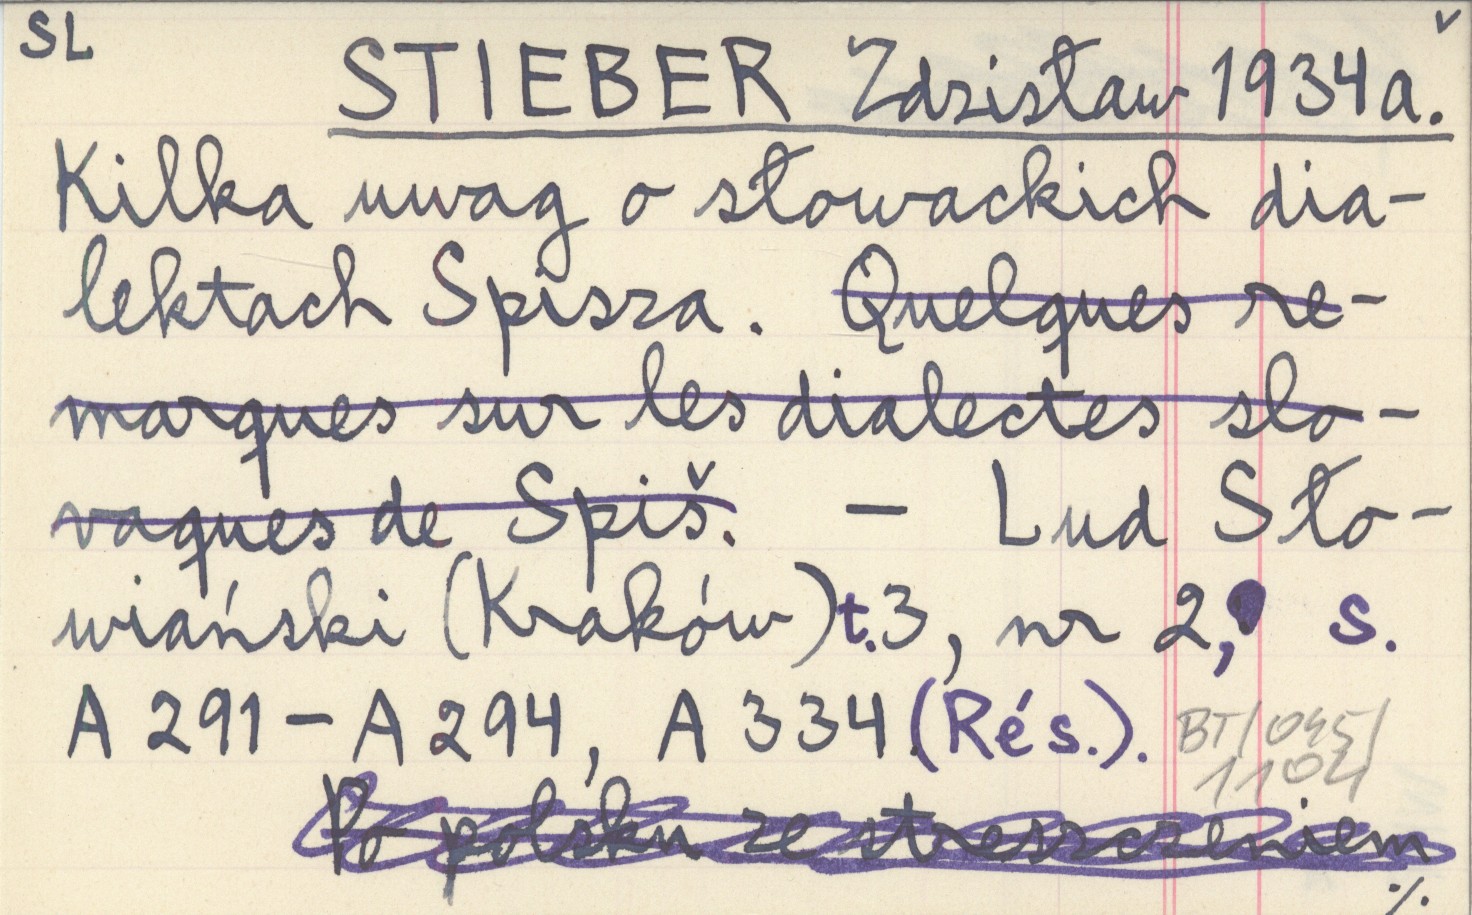 SL
STIEBER Zdzisław 1934a.
Kilka uwag o słowackich dia-
lektach Spisza. Quelques re-
marques sur les dialectes slo-
vaques de Spiš. – Lud Sło-
wiański (Kraków) t. 3, nr 2, s.
A 291 – A 294, A 334 (Rés.).
BT/045/
1104
Po polsku ze streszczeniem
./.